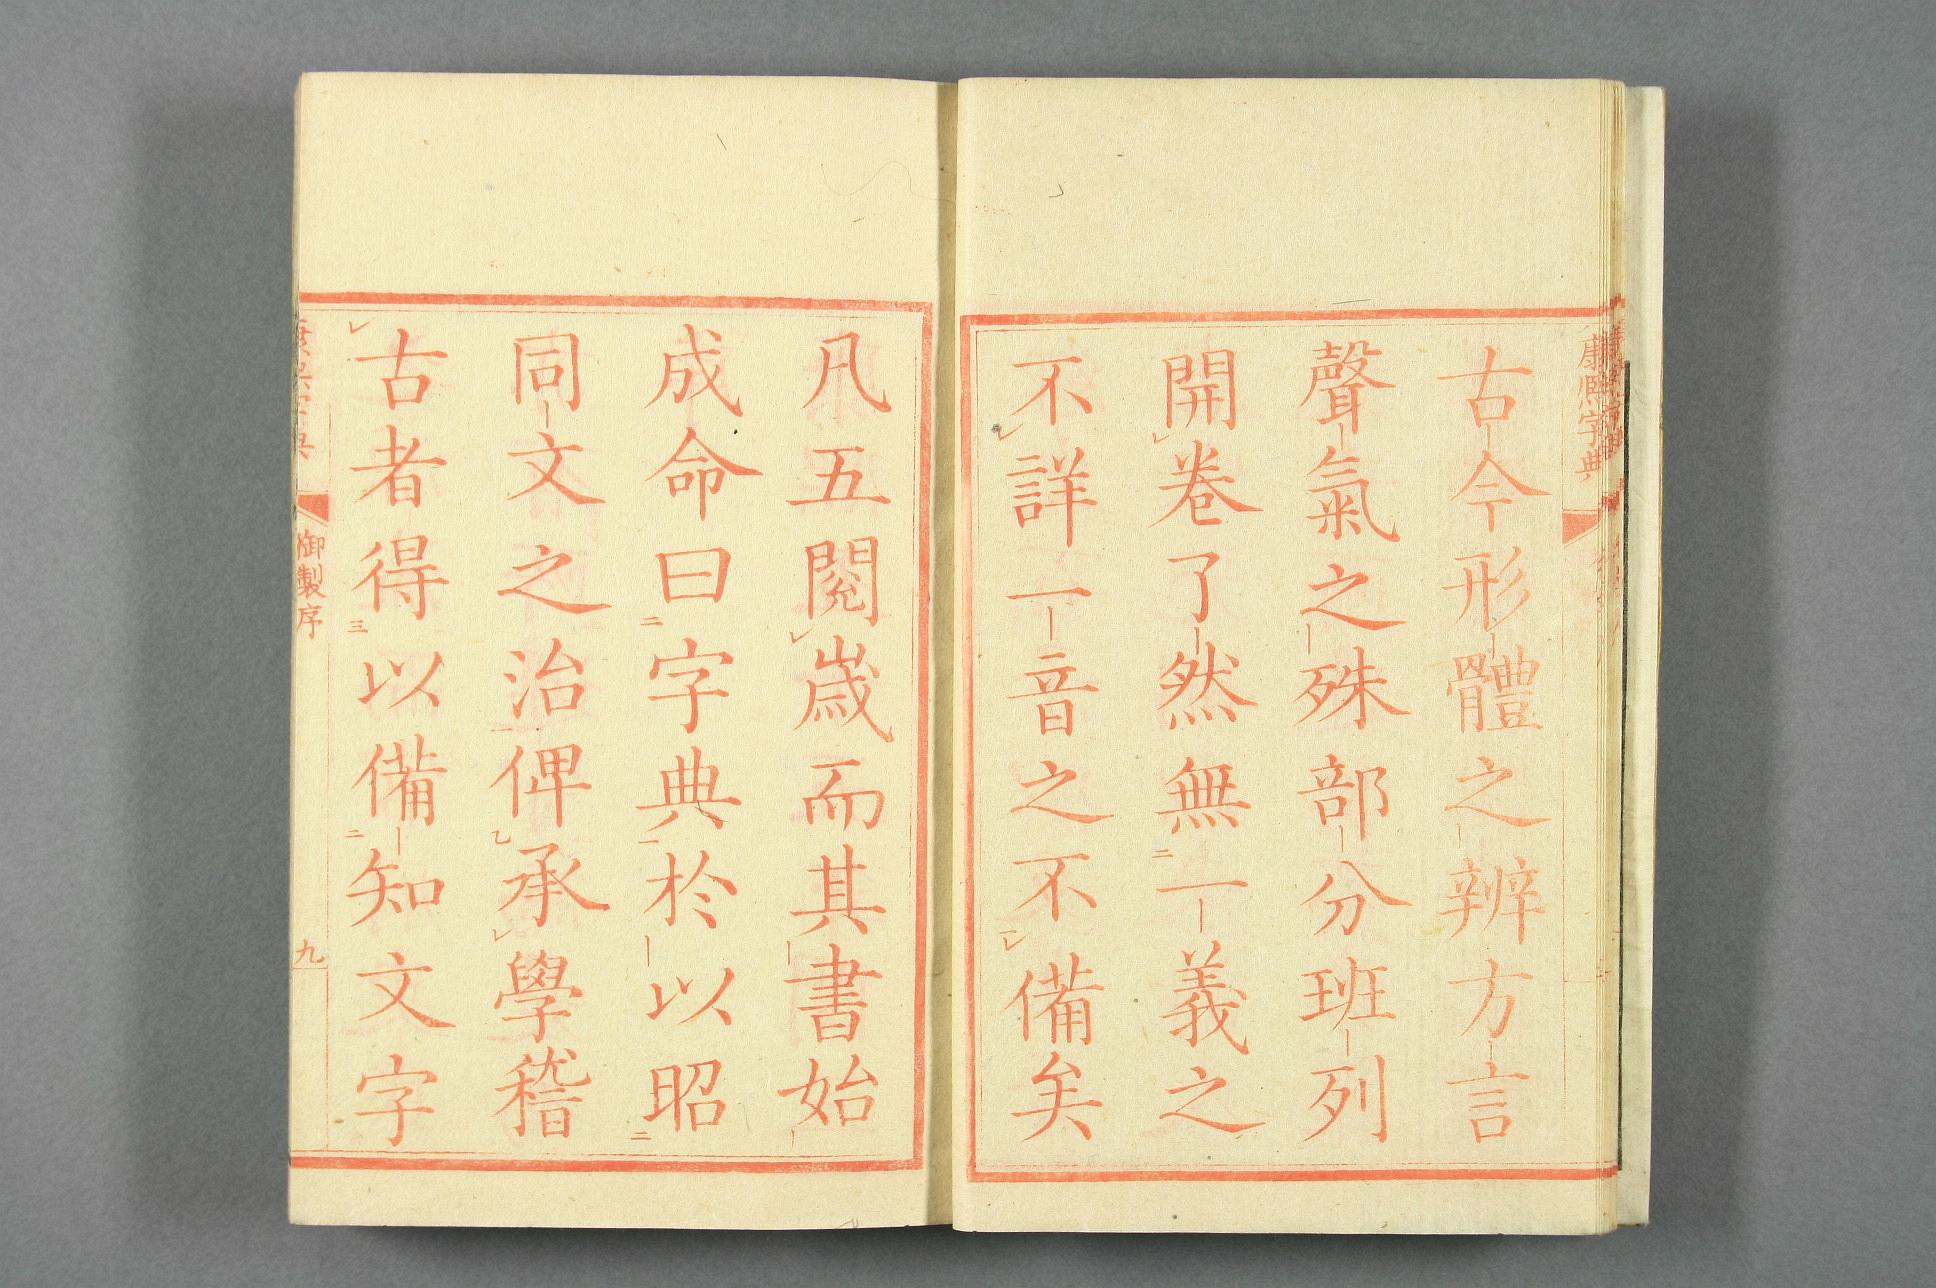 康熙字典
古今形體之辨方言
聲氣之殊部分班列
開卷了然無一義之
不詳一音之不備矣
凡五閱歲而其書始
成命曰字典於以昭
同文之治俾承學稽
古者得以備知文字
御製序
九